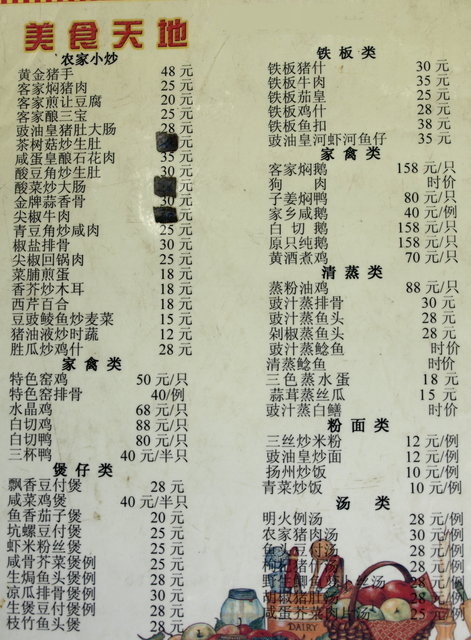 美食天地
农家小炒
黄金猪手 48 元
客家焖猪肉 25 元
客家煎让豆腐 20 元
客家酿三宝 25 元
豉油皇猪肚大肠 28 元
茶树菇炒生肚
咸蛋皇酿石花肉 35 元
酸豆角炒生肚 30 元
酸菜炒大肠
金牌蒜香骨 30 元
尖椒牛肉
青豆角炒咸肉 25 元
椒盐排骨 30 元
尖椒回锅肉 25 元
菜脯煎蛋 18 元
香芥炒木耳 18 元
西芹百合 18 元
豆豉鲮鱼炒麦菜 15 元
猪油液炒时蔬 12 元
胜瓜炒鸡什 28 元
家禽类
特色窑鸡 50 元/只
特色窑排骨 40/例
水晶鸡 68 元/只
白切鸡 88 元/只
白切鸭 80 元/只
三杯鸭 40 元/半只
煲仔类
飘香豆付煲 28 元
咸菜鸡煲 40 元/半只
鱼香茄子煲 20 元
坑螺豆付煲 25 元
虾米粉丝煲 25 元
咸骨芥菜煲例 25 元
生焗鱼头煲例 28 元
凉瓜排骨煲例 30 元
生煲豆付煲例 28 元
枝竹鱼头煲 28 元
铁板类
铁板猪什 30 元
铁板牛肉 35 元
铁板茄皇 25 元
铁板鸡什 28 元
铁板鱼扣 38 元
豉油皇河虾河鱼仔 35 元
家禽类
客家焖鹅 158 元/只
狗 肉 时价
子姜焖鸭 80 元/只
家乡咸鹅 40 元/例
白切鹅 158 元/只
原只纯鹅 158 元/只
黄酒煮鸡 70 元/只
清蒸类
蒸粉油鸡 88 元/只
豉汁蒸排骨 30 元
豉汁蒸鱼头 28 元
剁椒蒸鱼头 28 元
豉汁蒸鲶鱼 时价
清蒸鲶鱼 时价
三色蒸水蛋 18 元
蒜茸蒸丝瓜 15 元
豉汁蒸白鳝 时价
粉面类
三丝炒米粉 12 元/例
豉油皇炒面 12 元/例
扬州炒饭 10 元/例
青菜炒饭 10 元/例
汤 类
明火例汤 28 元/例
农家猪肉汤 30 元/例
28 元/例
28 元/例
28 元/例
胡椒猪肚汤 28 元/例
咸蛋芥菜肉片汤 25 元/例
DAIRY